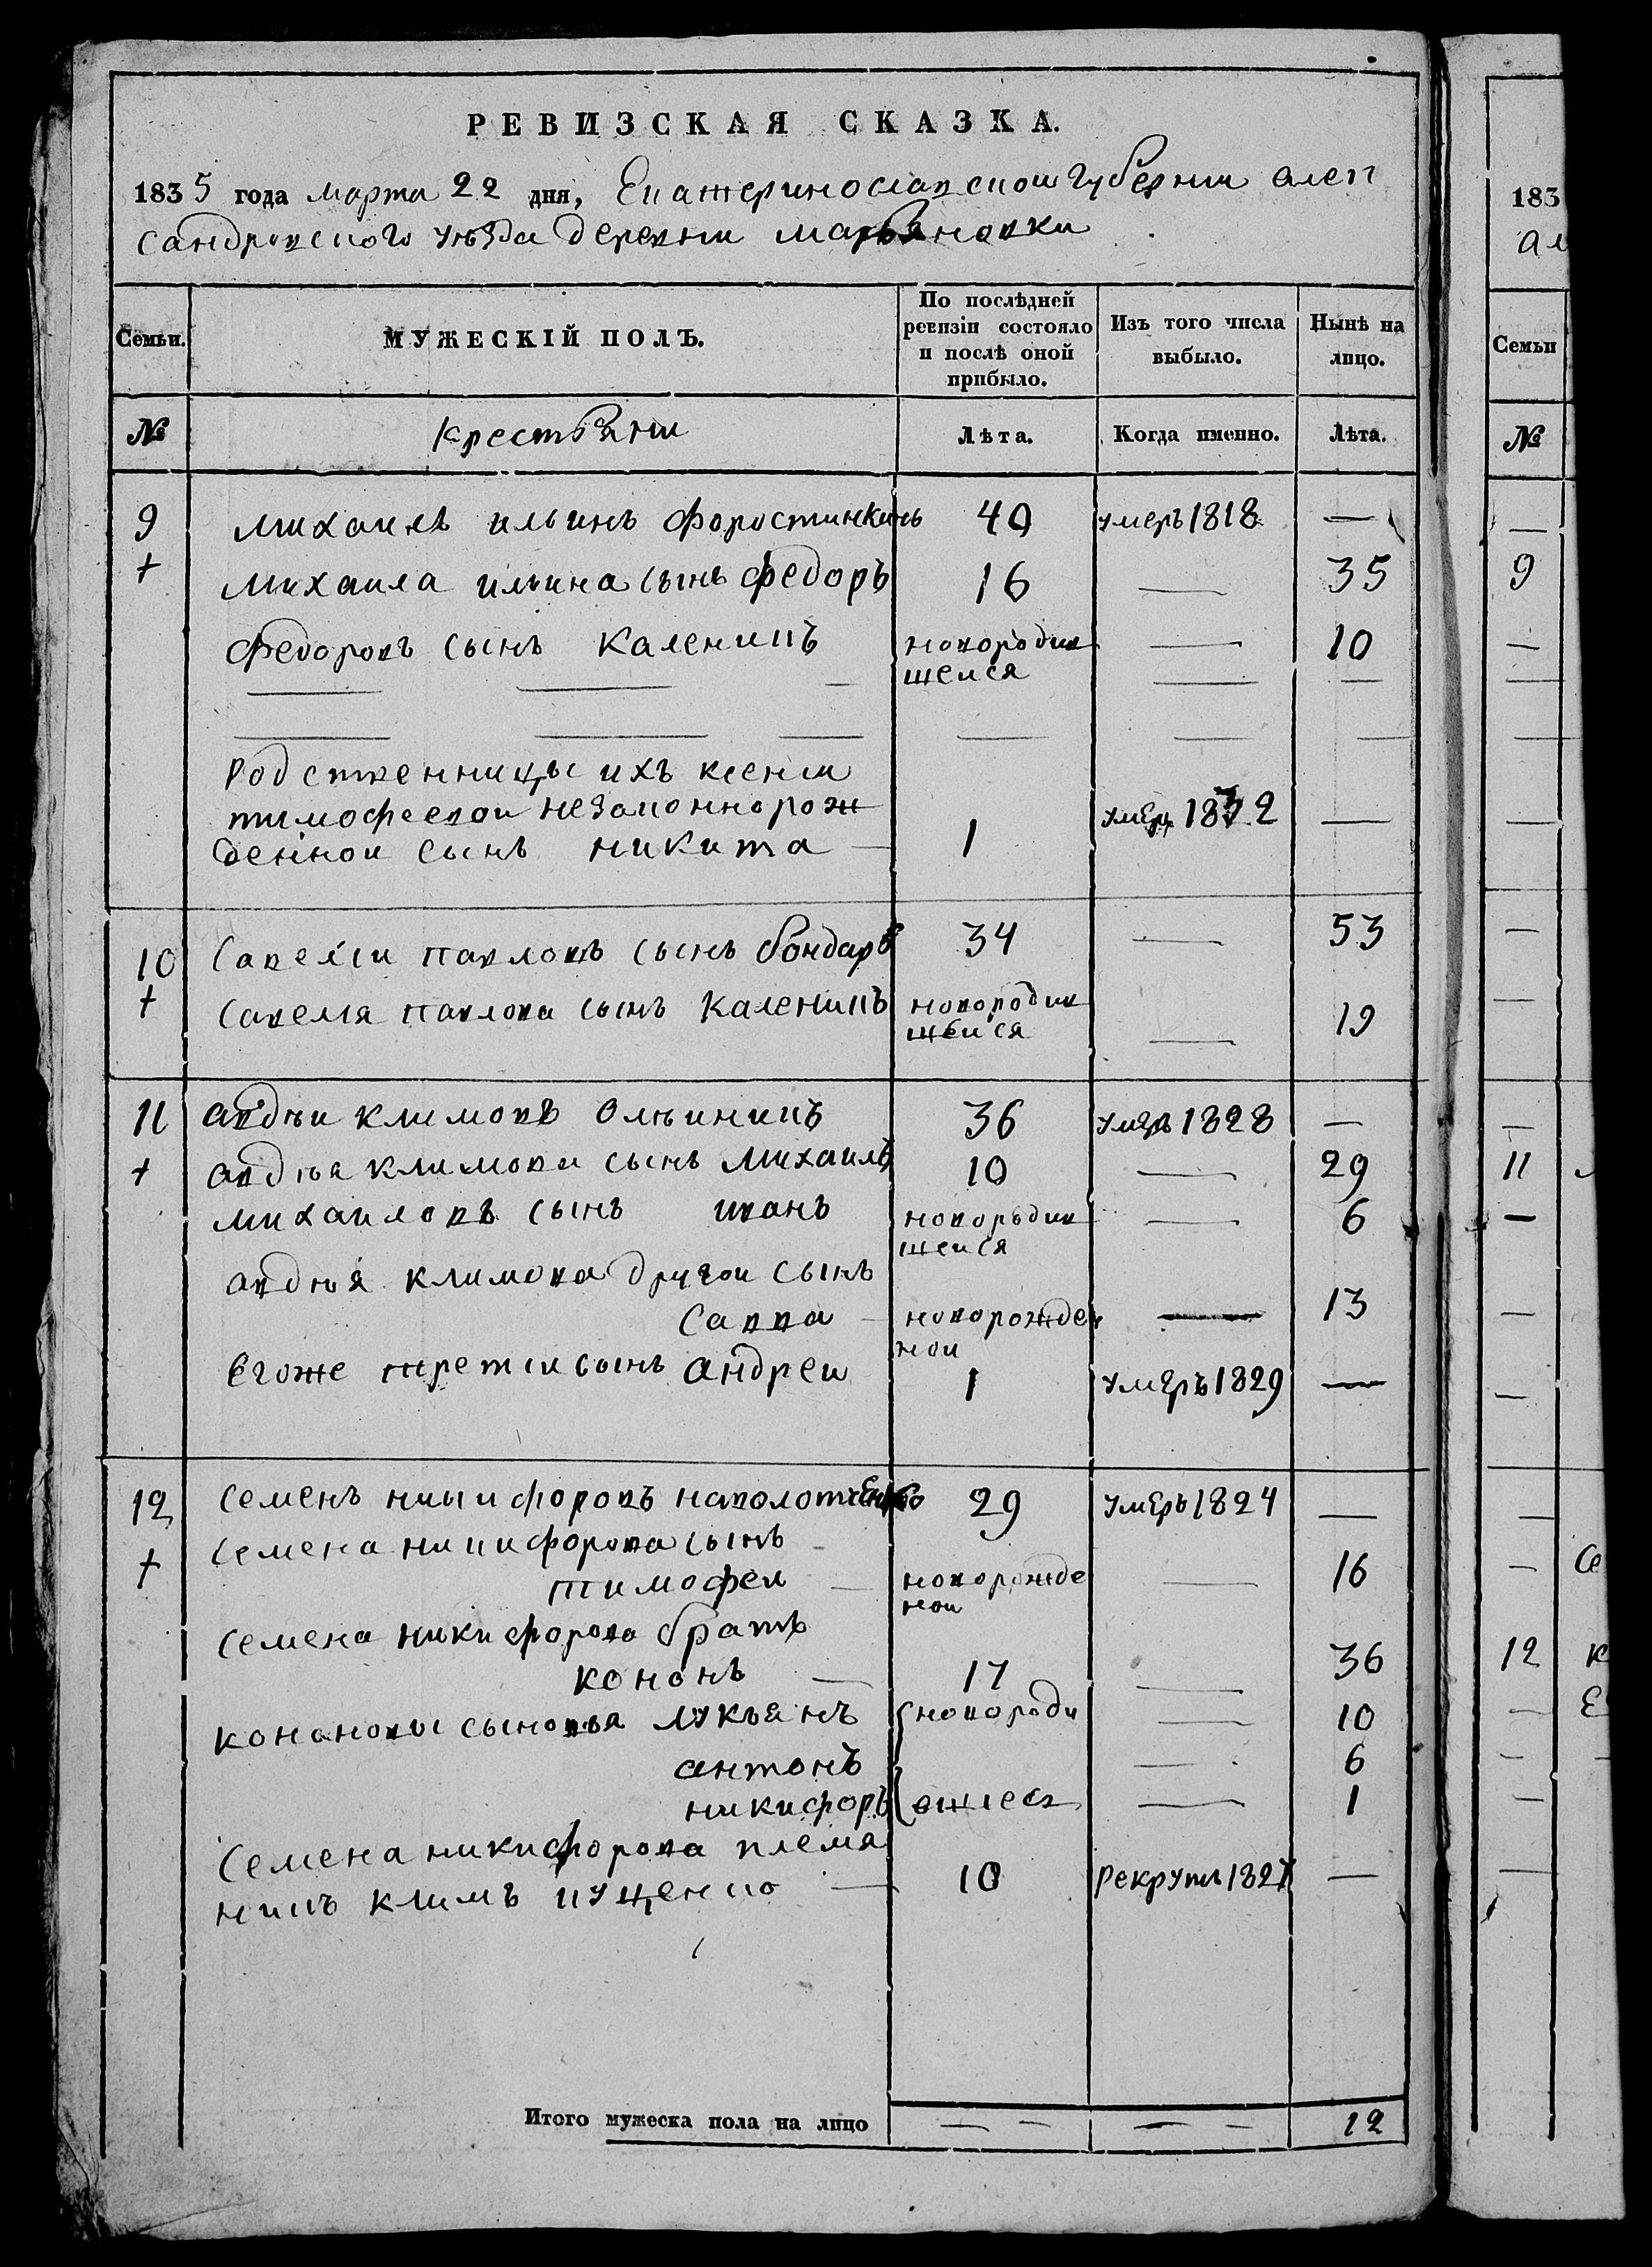 РЕВИЗСКАЯ СКАЗКА.
1835 года марта 22 дня, Екатеринославской Губернии алек
сандровского уѣзда деревни марьяновки
Семьи.
МУЖЕСКІЙ ПОЛЪ.
По послѣдней ревизіи состояло и послѣ оной прибыло.
Изъ того числа выбыло.
Нынѣ на лицо.
№ крестьяни Лѣта. Когда именно. Лѣта.
9 михаилъ ильинъ форостинкинъ 40 умеръ 1818 —
+ михаила ильина сынъ федоръ 16 — 35
федоровъ сынъ каленикъ новородив — 10
шейся
родственницы ихъ ксении
тимофеевой незаконнорож умеръ 1832 —
денной сынъ никита — 1
10 савелій павловъ сынъ бондарь 34 — 53
+ савелія павлова сынъ каленикъ новородив — 19
шейся
11 авдѣй климовъ олѣйникъ 36 умеръ 1828 —
+ авдѣя климова сынъ михаилъ 10 — 29
михайловъ сынъ иванъ новородив — 6
шейся
авдѣя климова другой сынъ
савва — новорожден — 13
ной
егоже третій сынъ андрей 1 умеръ 1829 —
12 семенъ никифоровъ 29 умеръ 1824 —
+ семена никифорова сынъ
тимофей — новорожде — 16
ной
семена никифорова братъ
кононъ — 17 — 36
кононовы сыновья лукьянъ новороди — 10
антонъ — 6
никифоръ вшиеся — 1
семена никифорова племя
никъ климъ куценко — 10 рекрутъ 1827 —
Итого мужеска пола на лицо — — — — 12
183
ал
Семьи
№
9
11
12